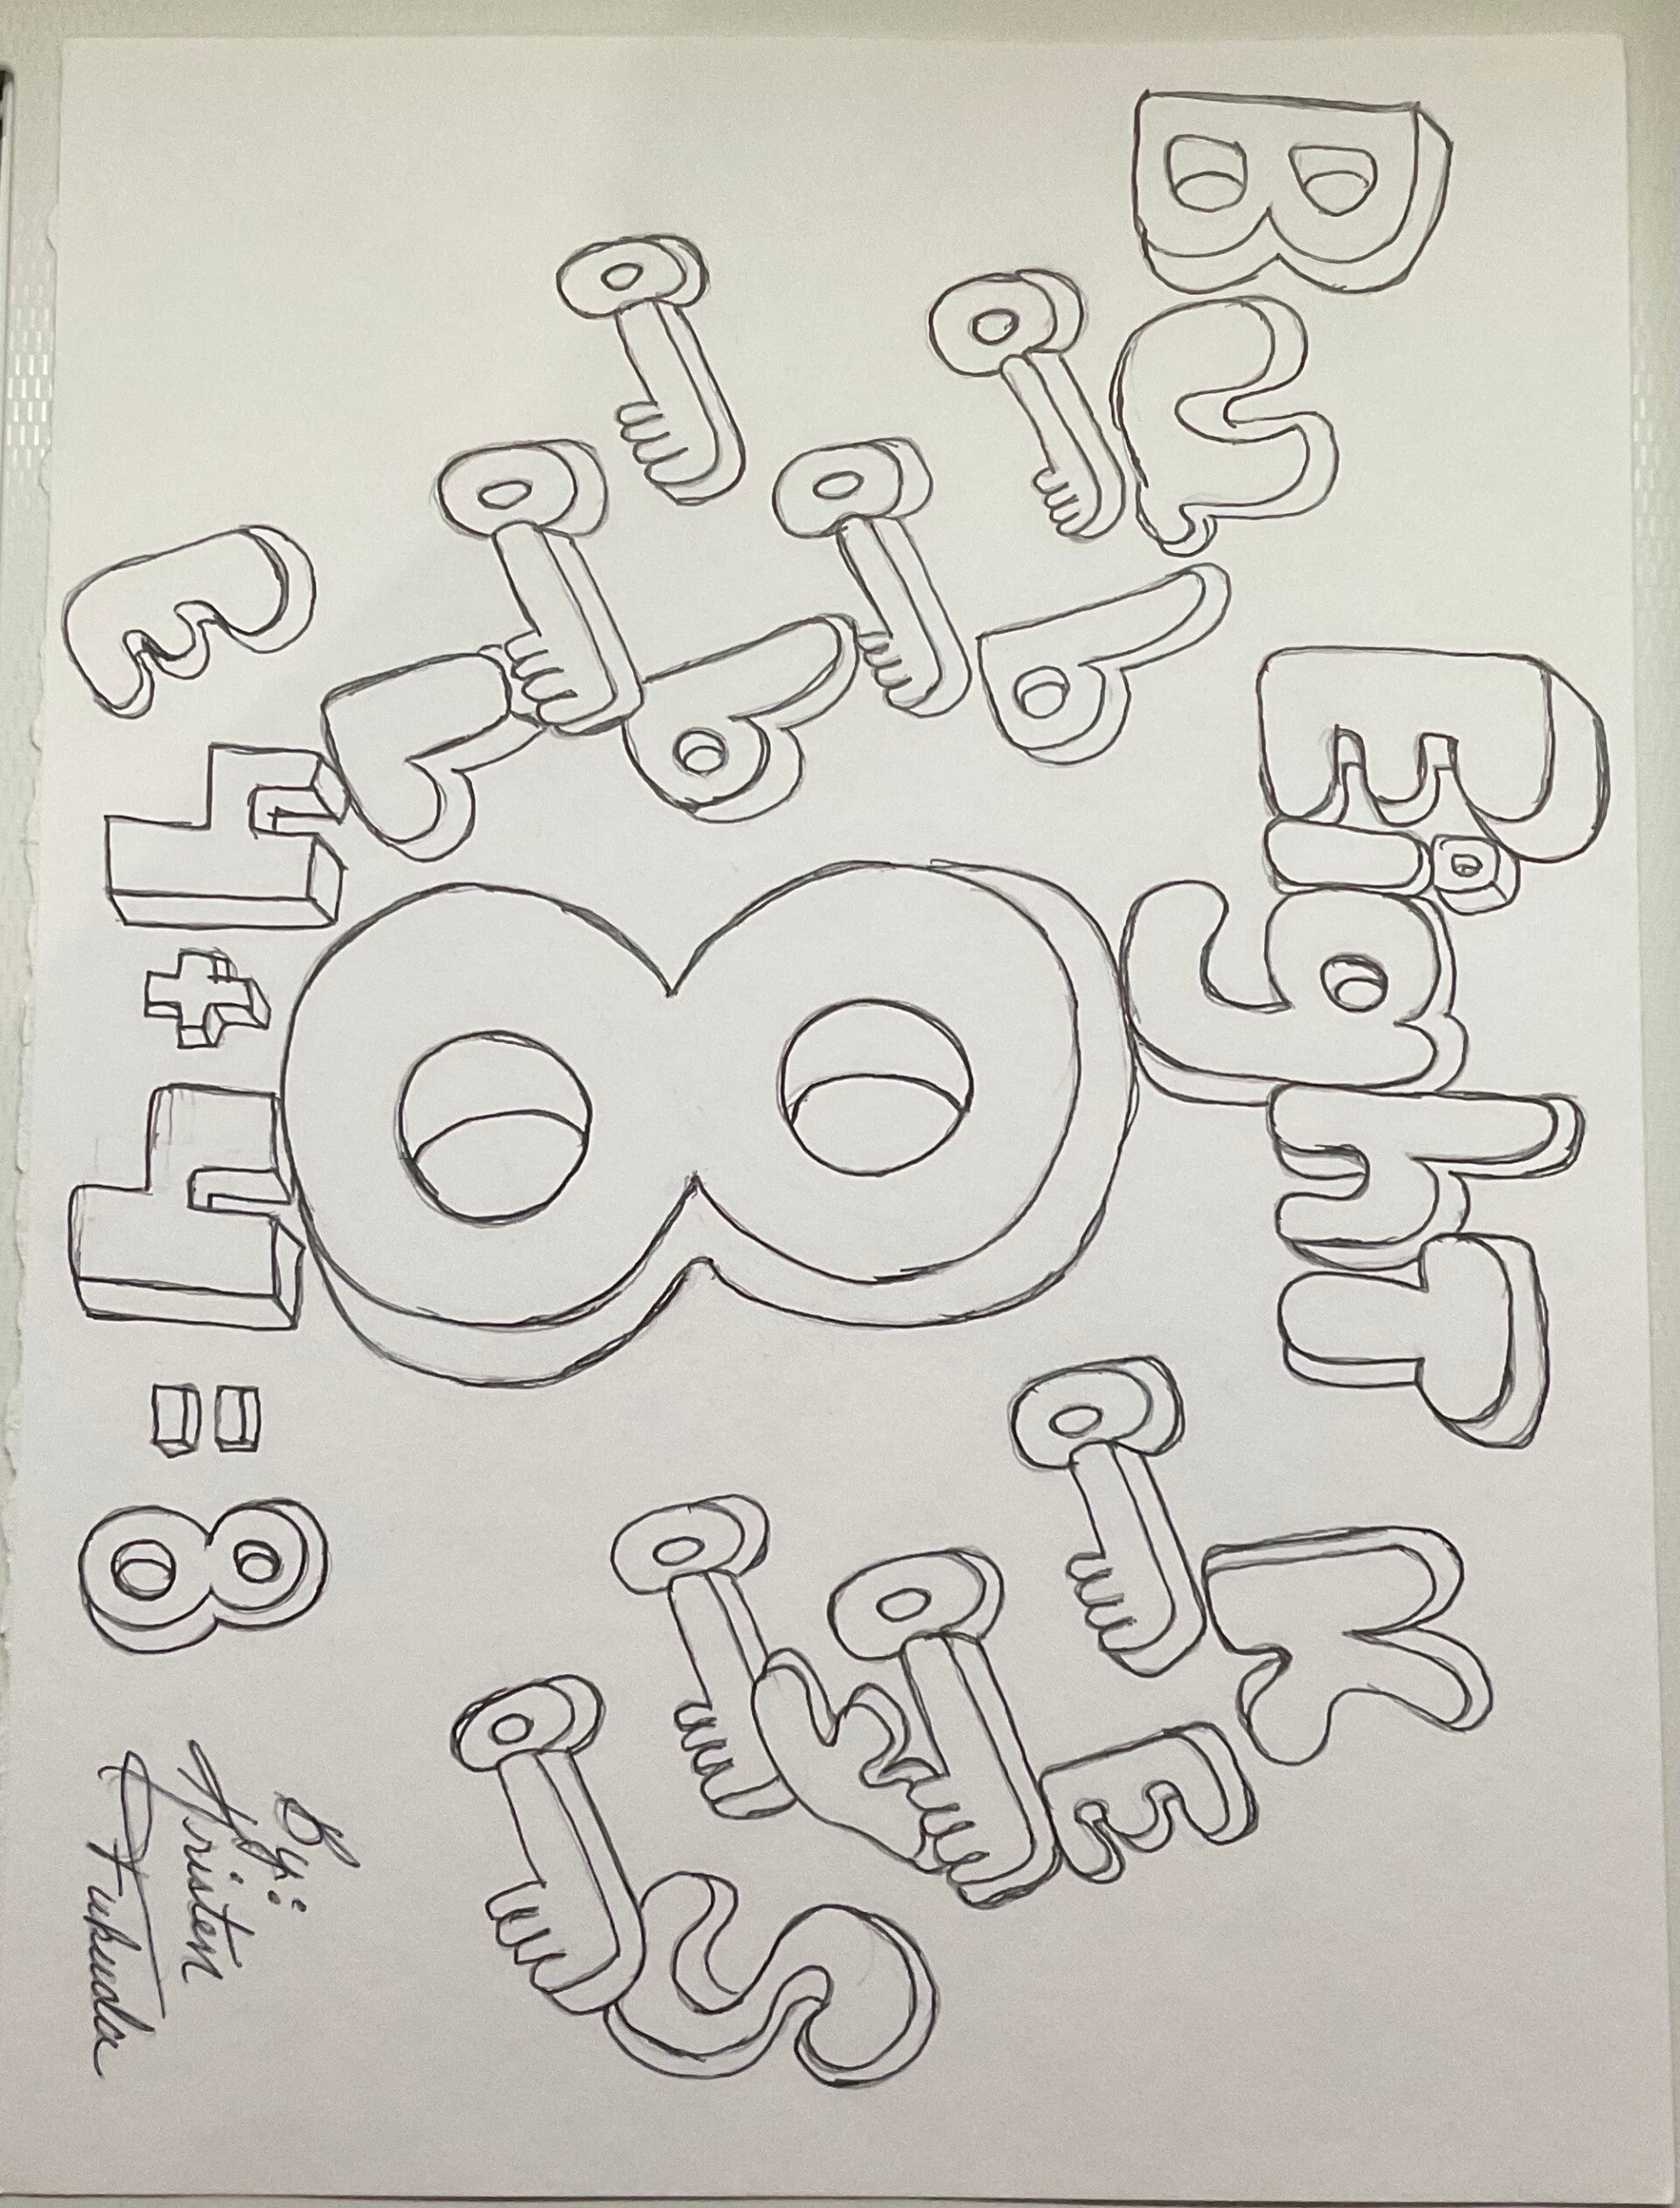 EighT
BubbLE
8
KEYS
4+4=8
By:
Kristen
Fukuda